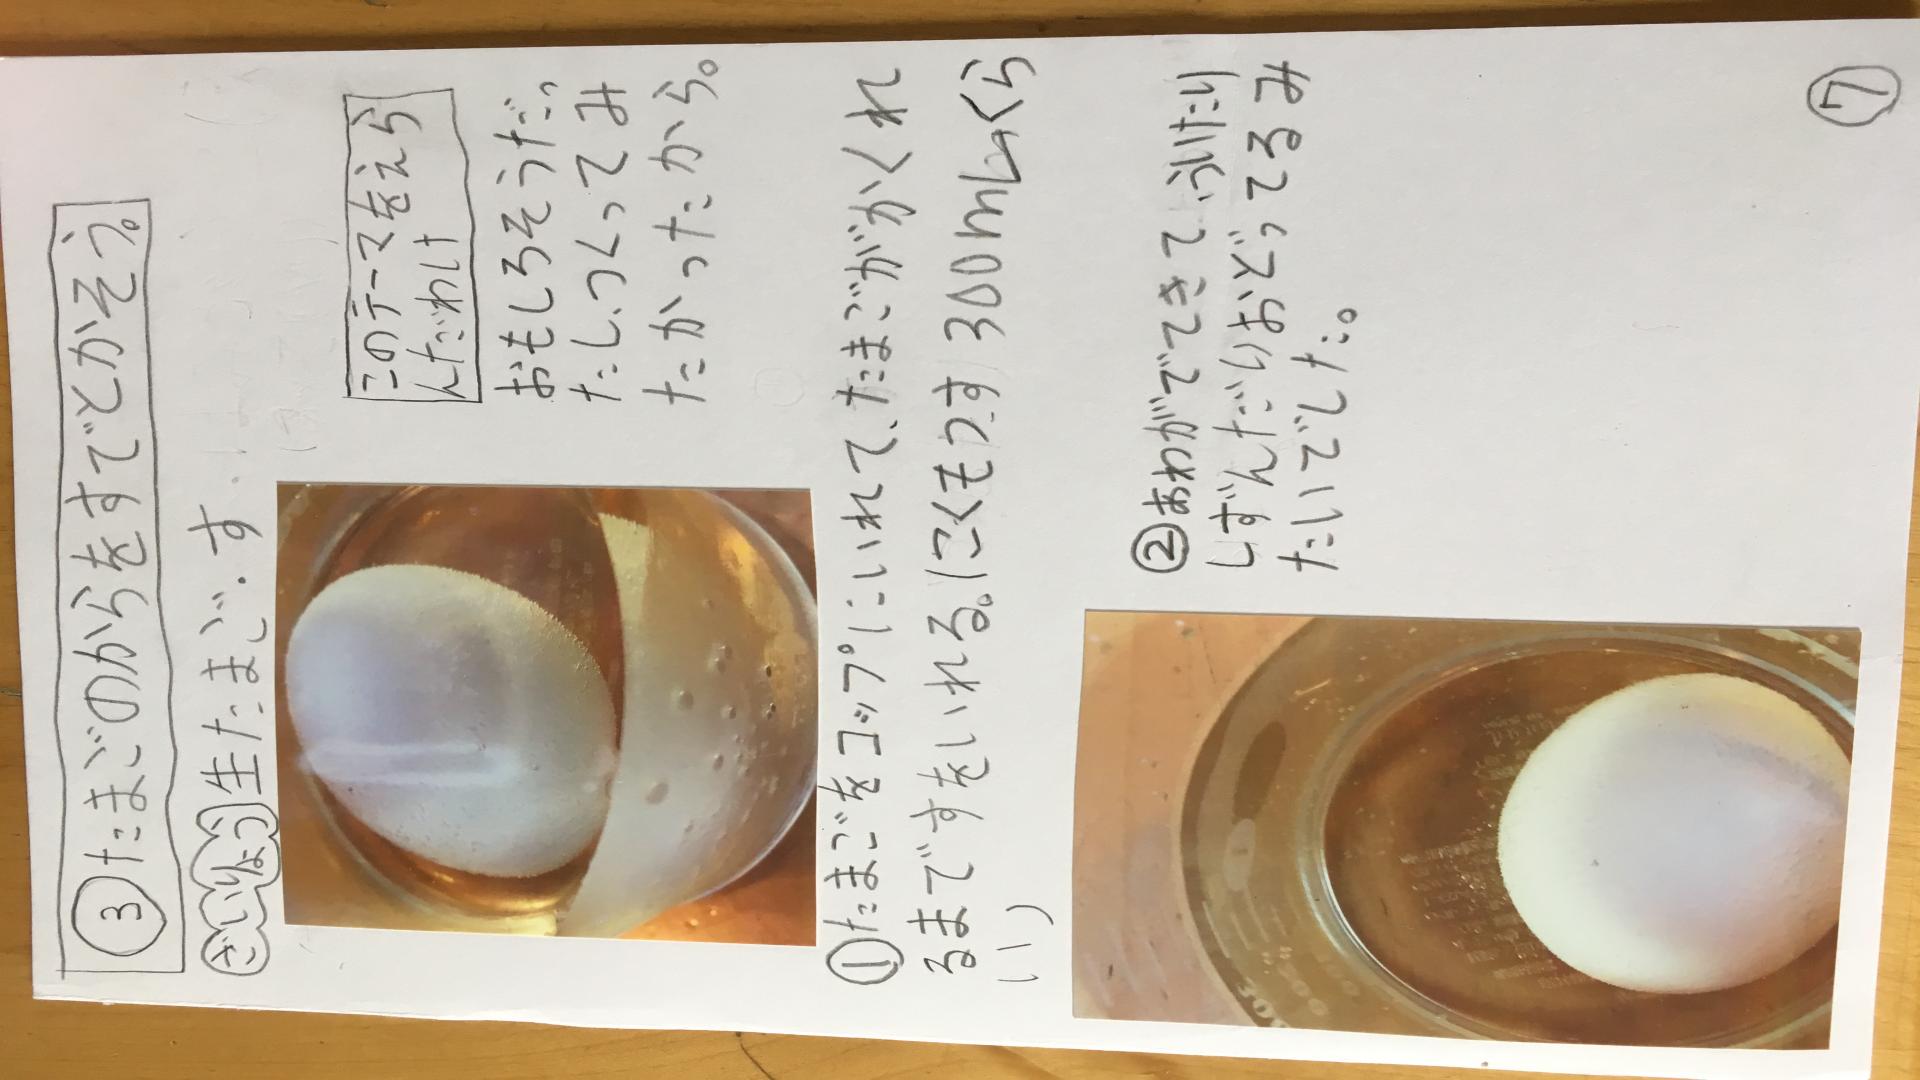 ③たまごのからをすでとかそう。
ざいりょう 生たまご.す
このテーマをえら
んだわけ
おもしろそうだっ
たし、つくってみ
たかったから。
①たまごをコップにいれて、たまごがかくれ
るまですをいれる。(こくもつす300mLくら
い)
②あわがでてきて、ういたり
しずんだりおどってるみ
たいでした。
⑦